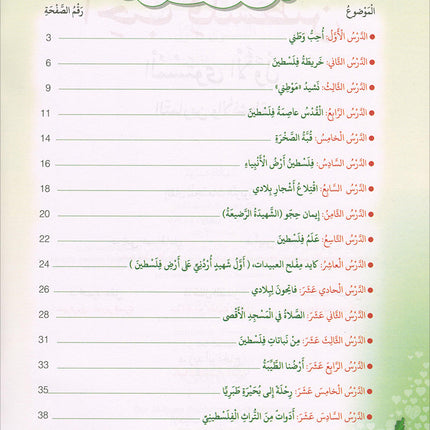 الْمَوْضوعُ رَقْمُ الصَّفْحَةِ
الدَّرْسُ الْأَوَّلُ: أُحِبُّ وَطَني 3
الدَّرْسُ الثّاني: خَريطَةُ فِلَسْطينَ 6
الدَّرْسُ الثّالِثُ: نَشيدُ «مَوْطِني» 9
الدَّرْسُ الرّابِعُ: الْقُدْسُ عاصِمَةُ فِلَسْطينَ 11
الدَّرْسُ الْخامِسُ: قُبَّةُ الصَّخْرَةِ 14
الدَّرْسُ السّادِسُ: فِلَسْطينُ أَرْضُ الْأَنْبِياءِ 16
الدَّرْسُ السّابِعُ: اقْتِلاعُ أَشْجارِ بِلادي 18
الدَّرْسُ الثّامِنُ: إيمان حِجّو (الشَّهيدَةُ الرَّضيعَةُ) 20
الدَّرْسُ التّاسِعُ: عَلَمُ فِلَسْطينَ 22
الدَّرْسُ الْعاشِرُ: كايد مِفْلح العبيدات، ( أَوَّلُ شَهيدٍ أُرْدُنِيٍّ عَلى أَرْضِ فِلَسْطينَ ) 24
الدَّرْسُ الْحادي عَشَرَ: فاتِحونَ لِبِلادي 26
الدَّرْسُ الثّاني عَشَرَ: الصَّلاةُ في الْمَسْجِدِ الْأَقْصى 28
الدَّرْسُ الثّالِثَ عَشَرَ: مِنْ نَباتاتِ فِلَسْطينَ 31
الدَّرْسُ الرّابِعَ عَشَرَ: أَرْضُنا الطَّيِّبَةُ 33
الدَّرْسُ الْخامِسَ عَشَرَ: رِحْلَةٌ إِلى بُحَيْرَةِ طَبَرِيّا 35
الدَّرْسُ السّادِسَ عَشَرَ: أَدَواتٌ مِنَ التُّراثِ الْفِلَسْطينِيِّ 38